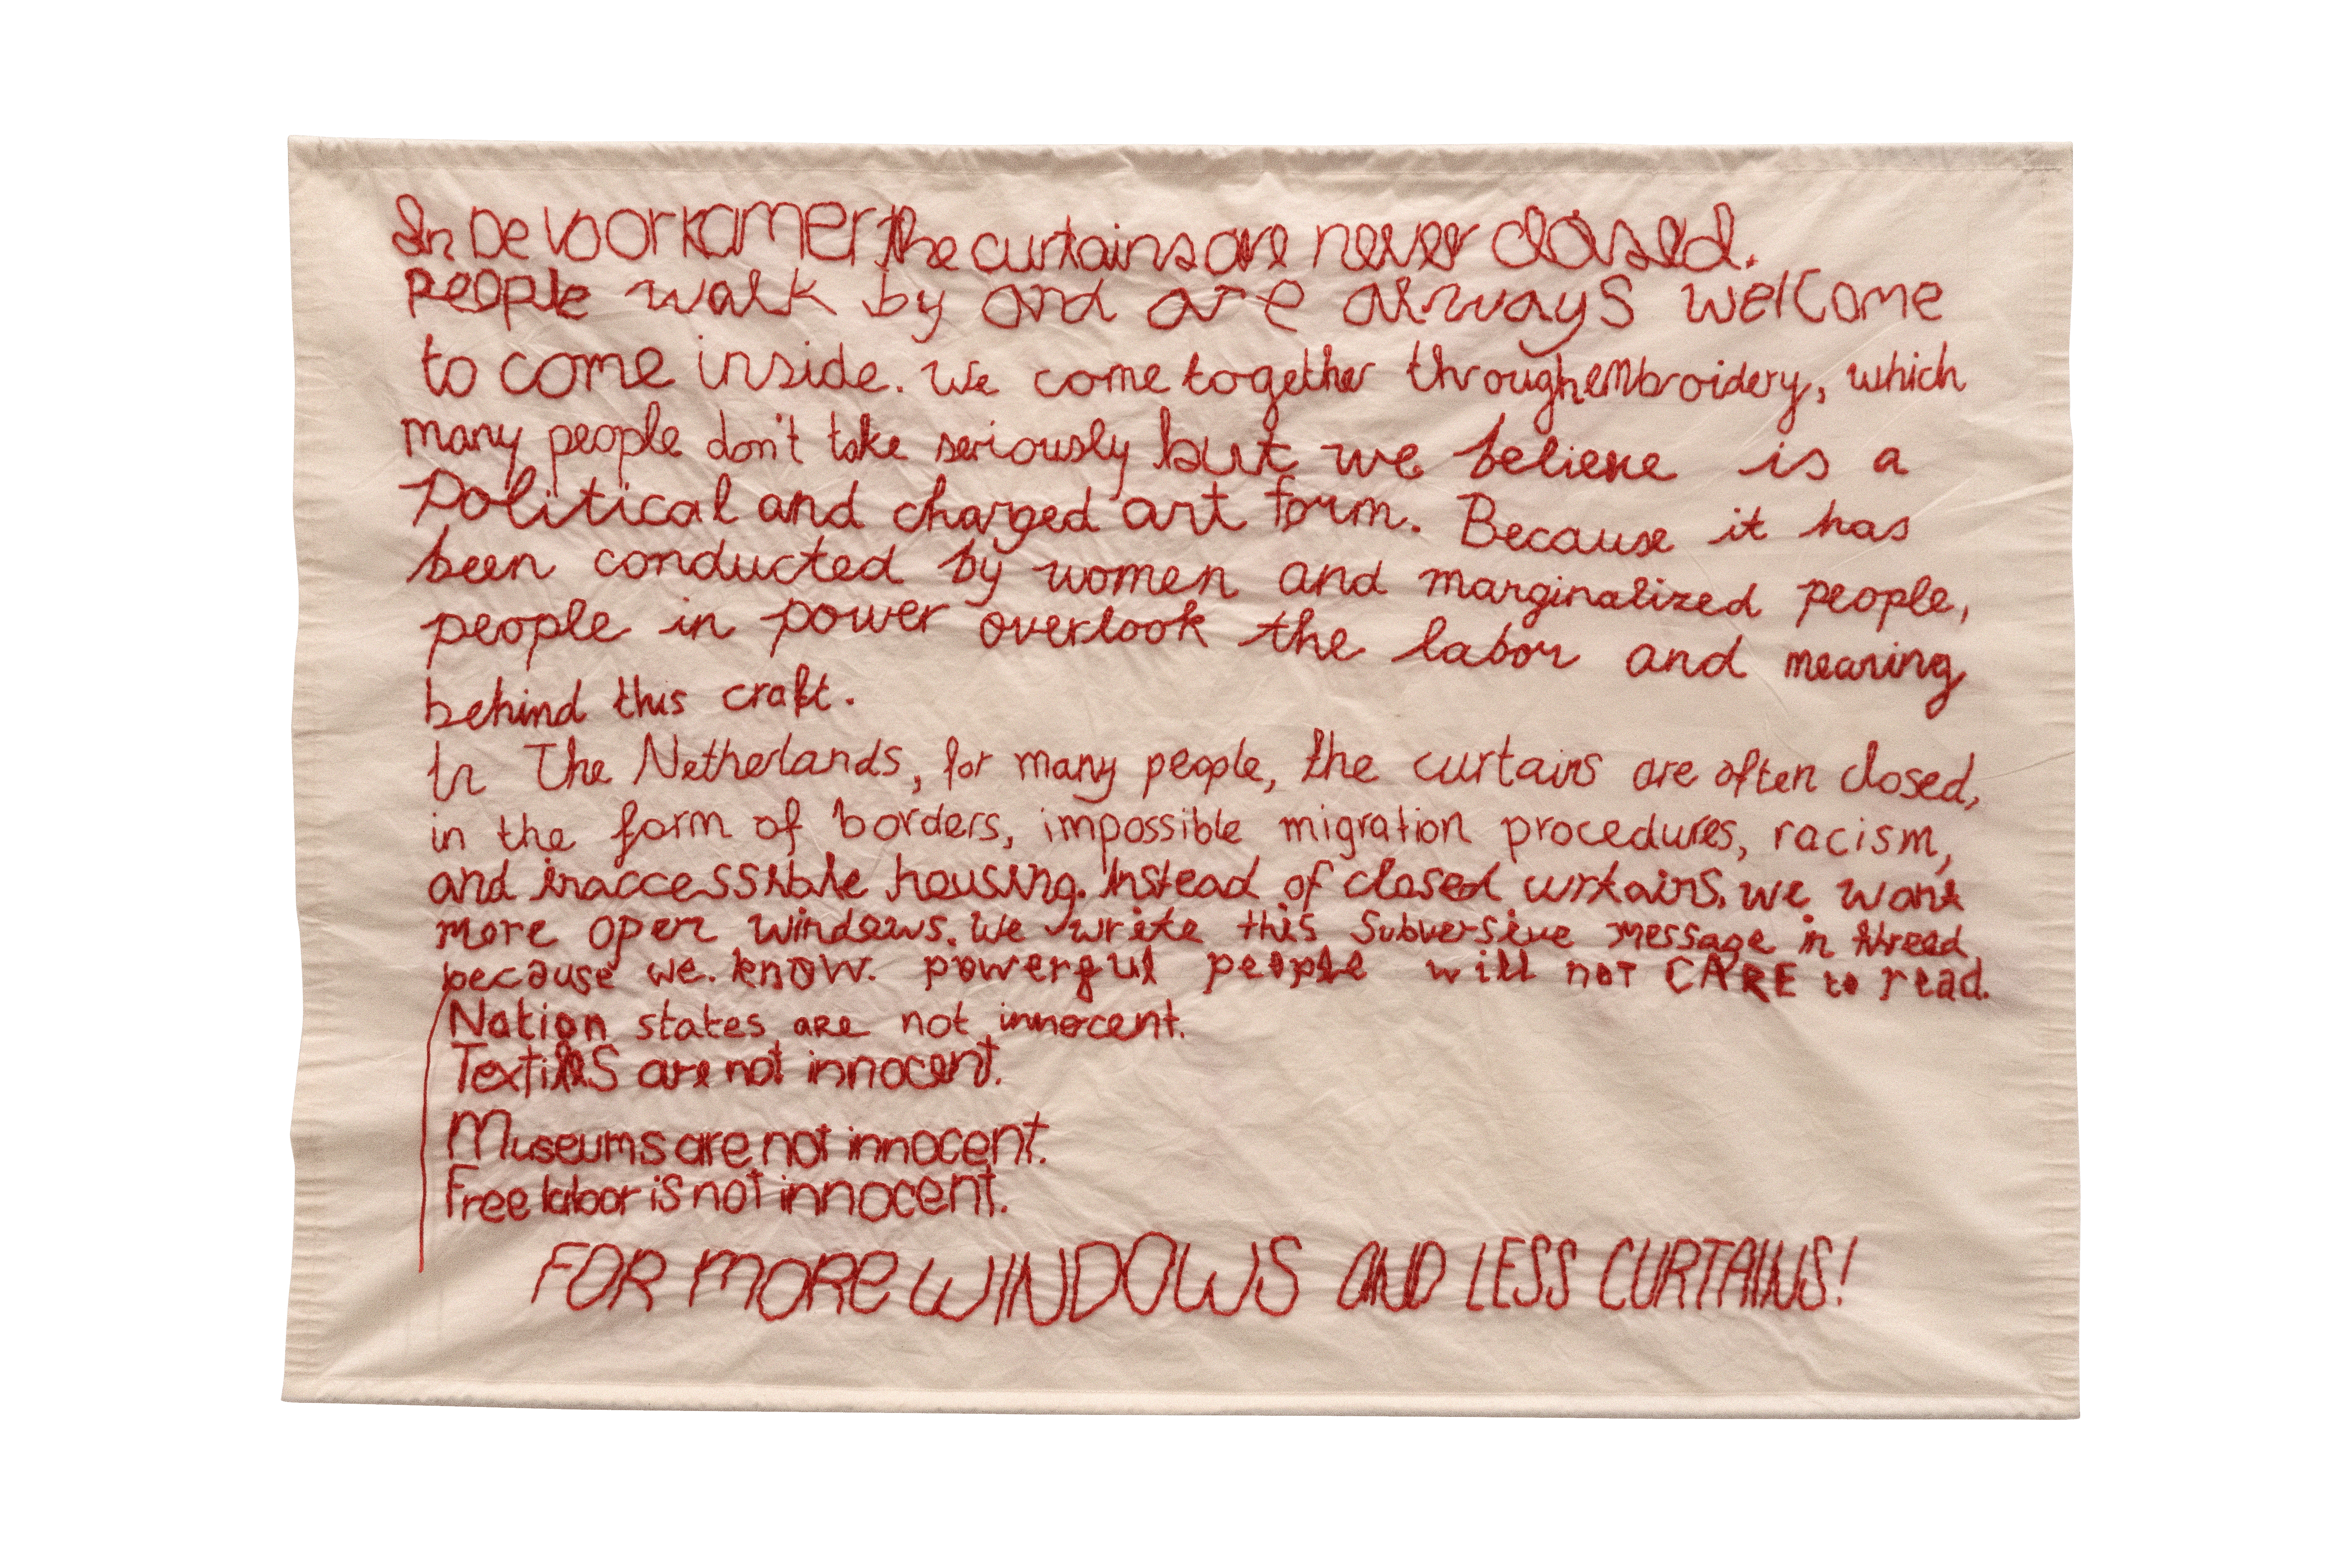 In De Voorkamer the curtains are never closed.
people walk by and are always welcome
to come inside. We come together through embroidery, which
many people don't take seriously but we believe is a
Political and charged art form. Because it has
been conducted by women and marginalized people,
people in power overlook the labor and meaning
behind this craft.
In The Netherlands, for many people, the curtains are often closed,
in the form of borders, impossible migration procedures, racism,
and inaccessible housing. Instead of closed curtains, we want
more open windows. We write this Subversive message in thread
because we know powerful people will not CARE to read.
Nation states are not innocent.
Textiles are not innocent.
Museums are not innocent.
Free labor is not innocent.
FOR MORE WINDOWS AND LESS CURTAINS!